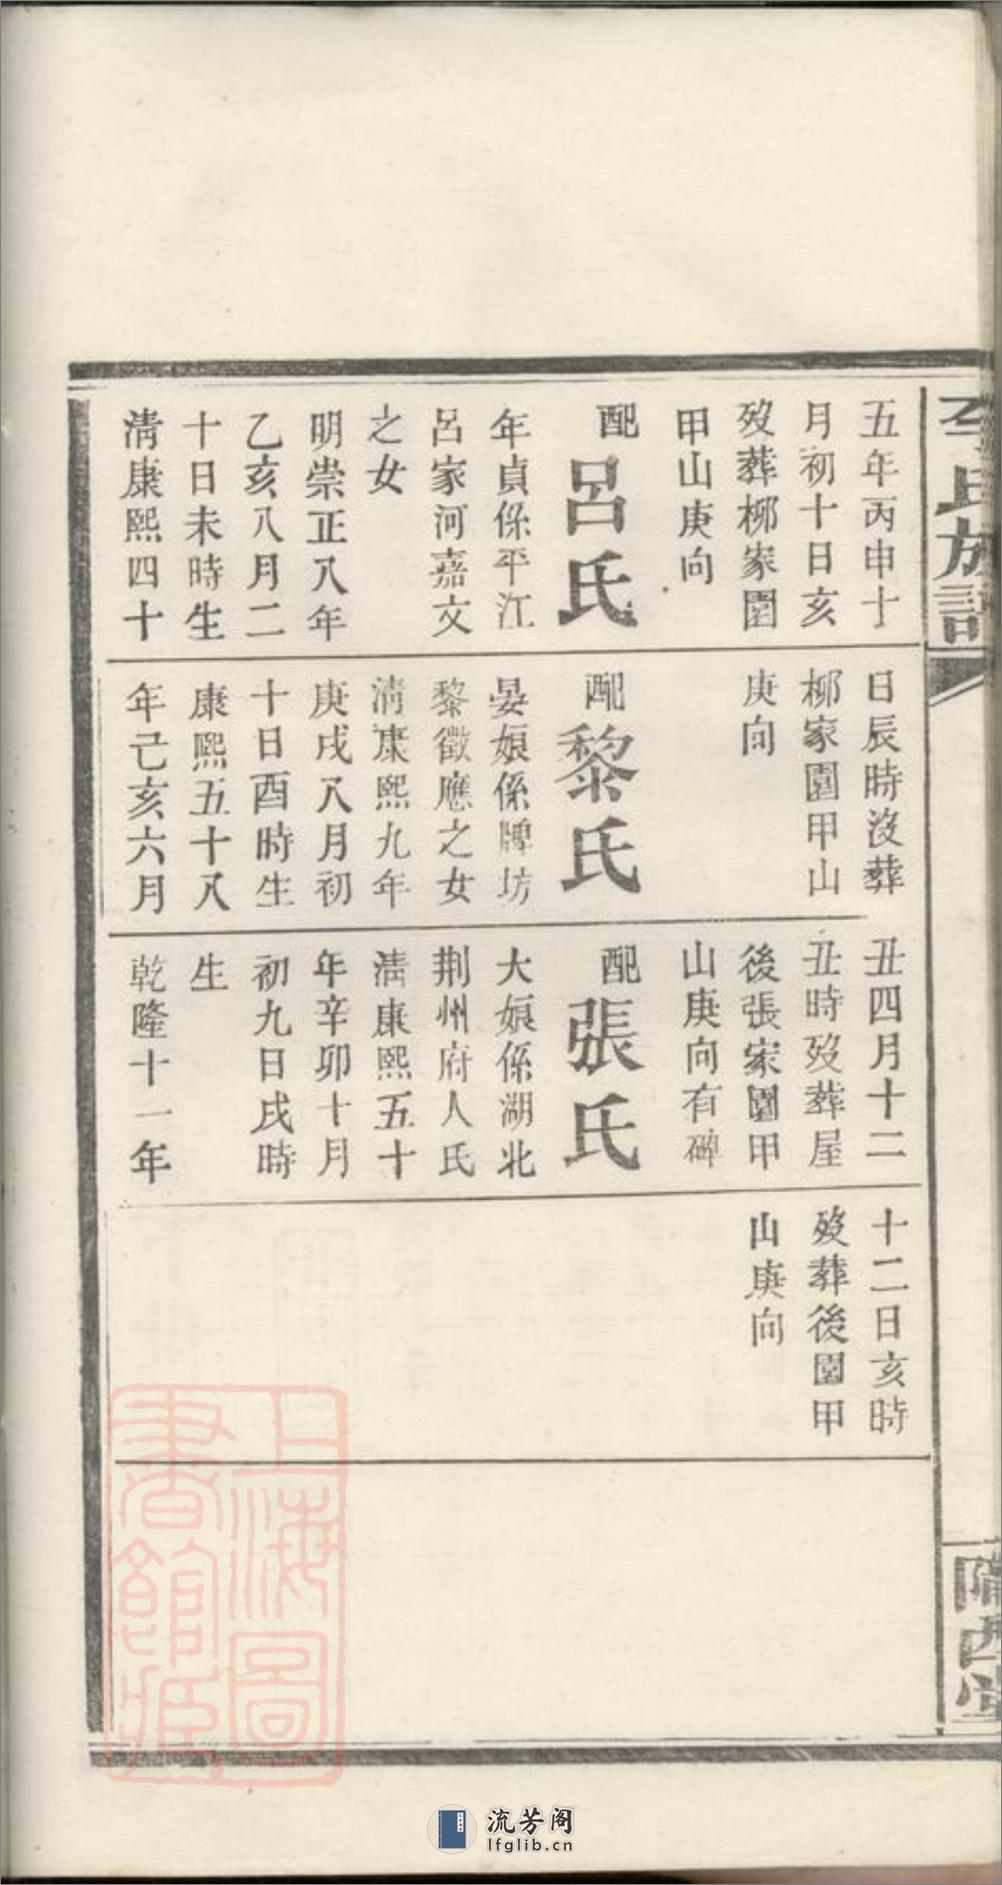 李氏族譜
五年丙申十
月初十日亥
歿葬柳家園
甲山庚向
配
呂氏
年貞係平江
呂家河嘉文
之女
明崇正八年
乙亥八月二
十日未時生
淸康熙四十
日辰時沒葬
柳家園甲山
庚向
配
黎氏
晏娘係牌坊
黎徵應之女
淸康熙九年
庚戌八月初
十日酉時生
康熙五十八
年己亥六月
丑四月十二
丑時歿葬屋
後張家園甲
山庚向有碑
配
張氏
大娘係湖北
荆州府人氏
淸康熙五十
年辛卯十月
初九日戌時
生
乾隆十一年
十二日亥時
歿葬後園甲
山庚向
隴西堂
上海圖
書館藏
流芳阁
lfglib.cn